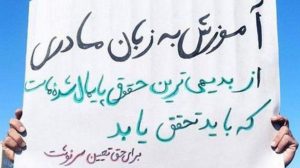 آموزش به زبان مادری
از بدیهی ترین حقوق پایمال شده ماست
که باید تحقق یابد
برای حق تعیین سرنوشت